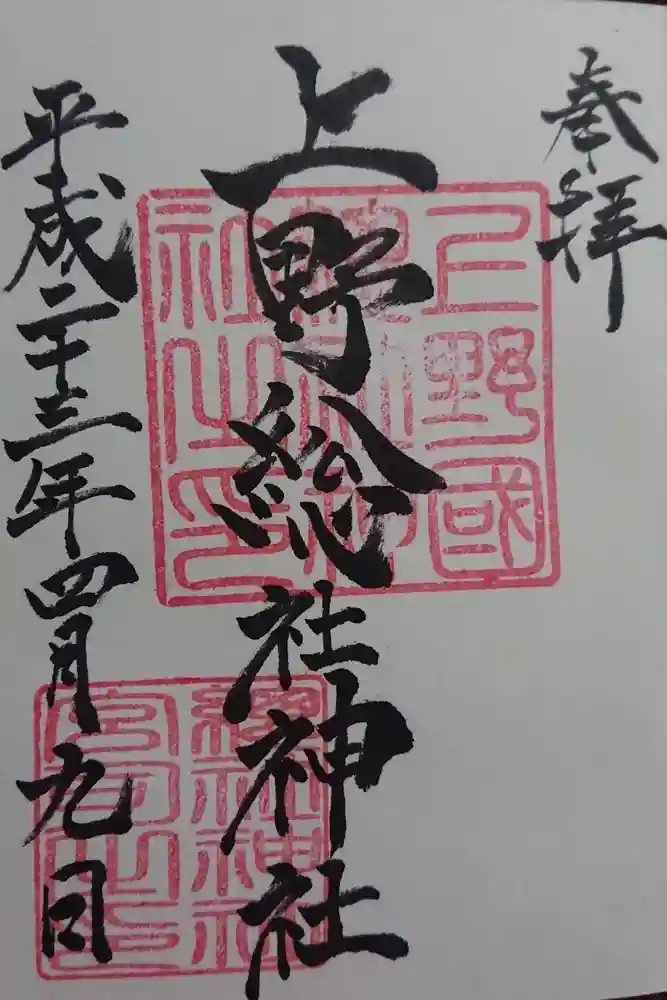 奉拝
上野総社神社
平成二十三年四月九日
上野國
総社神
社之印
総社神社
宮司之印